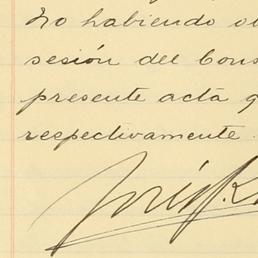 No habiendo
sesión del Cons
presente acta q
respectivamente.